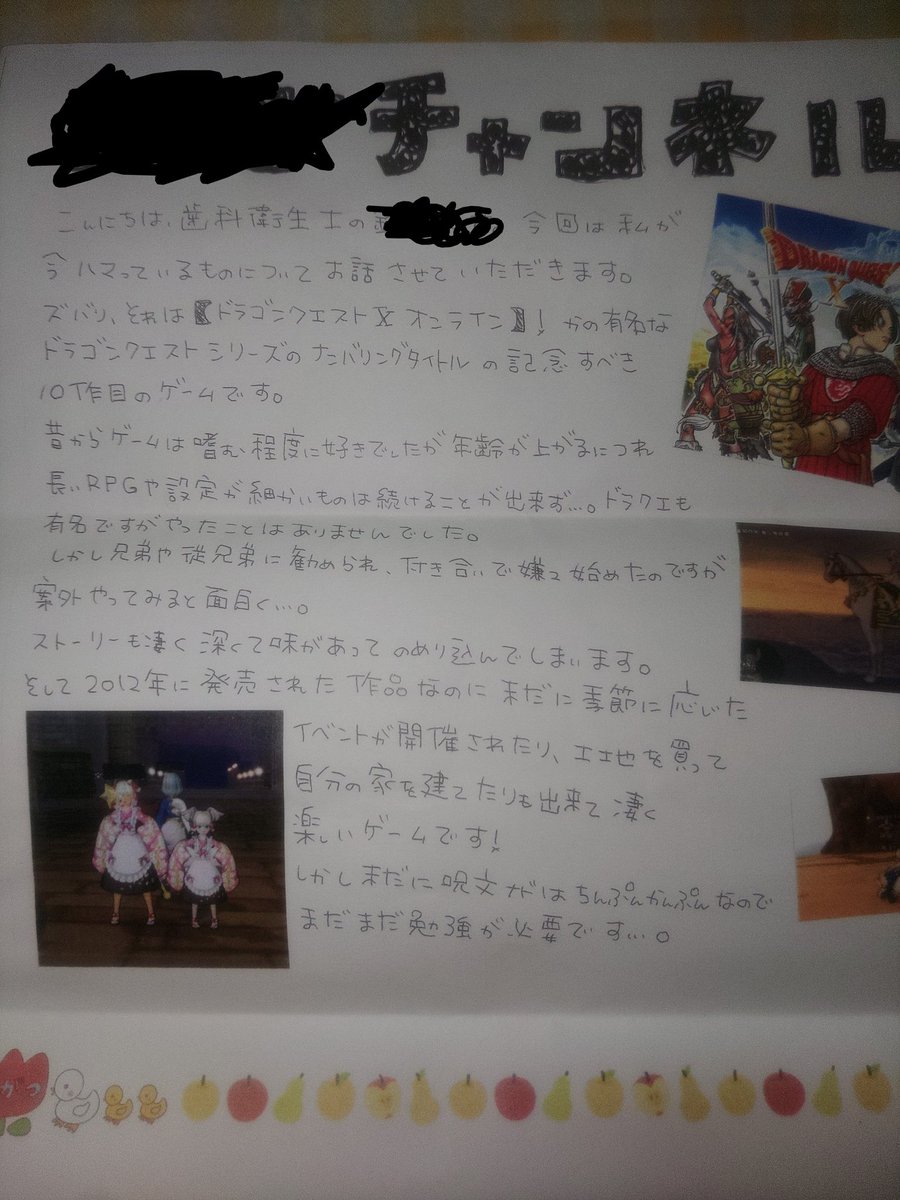 チャンネル
こんにちは、歯科衛生士の 今回は私が
今ハマっているものについてお話させていただきます。
ズバリ、それは【ドラゴンクエストX オンライン】! かの有名な
ドラゴンクエストシリーズのナンバリングタイトルの記念すべき
10作目のゲームです。
昔からゲームは嗜む程度に好きでしたが年齢が上がるにつれ
長いRPGや設定が細かいものは続けることが出来ず…。ドラクエも
有名ですがやったことはありませんでした。
しかし兄弟や従兄弟に勧められ、付き合いで嫌々始めたのですが
案外やってみると面白く…。
ストーリーも凄く深くて味があってのめり込んでしまいます。
そして2012年に発売された作品なのに未だに季節に応じた
イベントが開催されたり、土地を買って
自分の家を建てたりも出来て凄く
楽しいゲームです!
しかし未だに呪文がはちんぷんかんぷんなので
まだまだ勉強が必要です…。
DRAGON QUEST
X
がつ